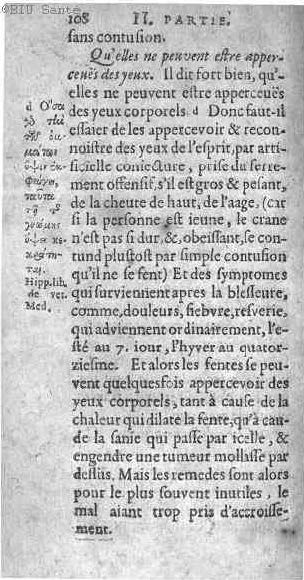 ©BIU Santé
108 II. PARTIE.
sans contusion.
Qu'elles ne peuvent estre apper-
ceuës des yeux. Il dit fort bien, qu'-
elles ne peuvent estre apperceuës
des yeux corporels d Donc faut-il
essaier de les appercevoir & recon-
noistre des yeux de l'esprit, par arti-
ficielle coniecture, prise du ferre-
ment offensif, s'il est gros & pesant,
de la cheute de haut, de l'aage, (car
si la personne est ieune, le crane
n'est pas si dur, &, obeissant, se con-
tund plustost par simple contusion
qu'il ne se fent) Et des symptomes
qui surviennent apres la blessure,
comme, douleurs, fiebvre, resverie,
qui adviennent ordinairement, l'e-
sté au 7. iour, l'hyver au quator-
ziesme. Et alors les fentes se peu-
vent quelquesfois appercevoir des
yeux corporels, tant à cause de la
chaleur qui dilate la fente, qu'à cau-
de la sanie qui passe par icelle, &
engendre une tumeur mollasse par
dessus. Mais les remedes sont alors
pour le plus souvent inutiles, le
mal aiant trop pris d'accroisse-
ment.
d Ὅσα
Hipp. lib.
de vet.
Med.